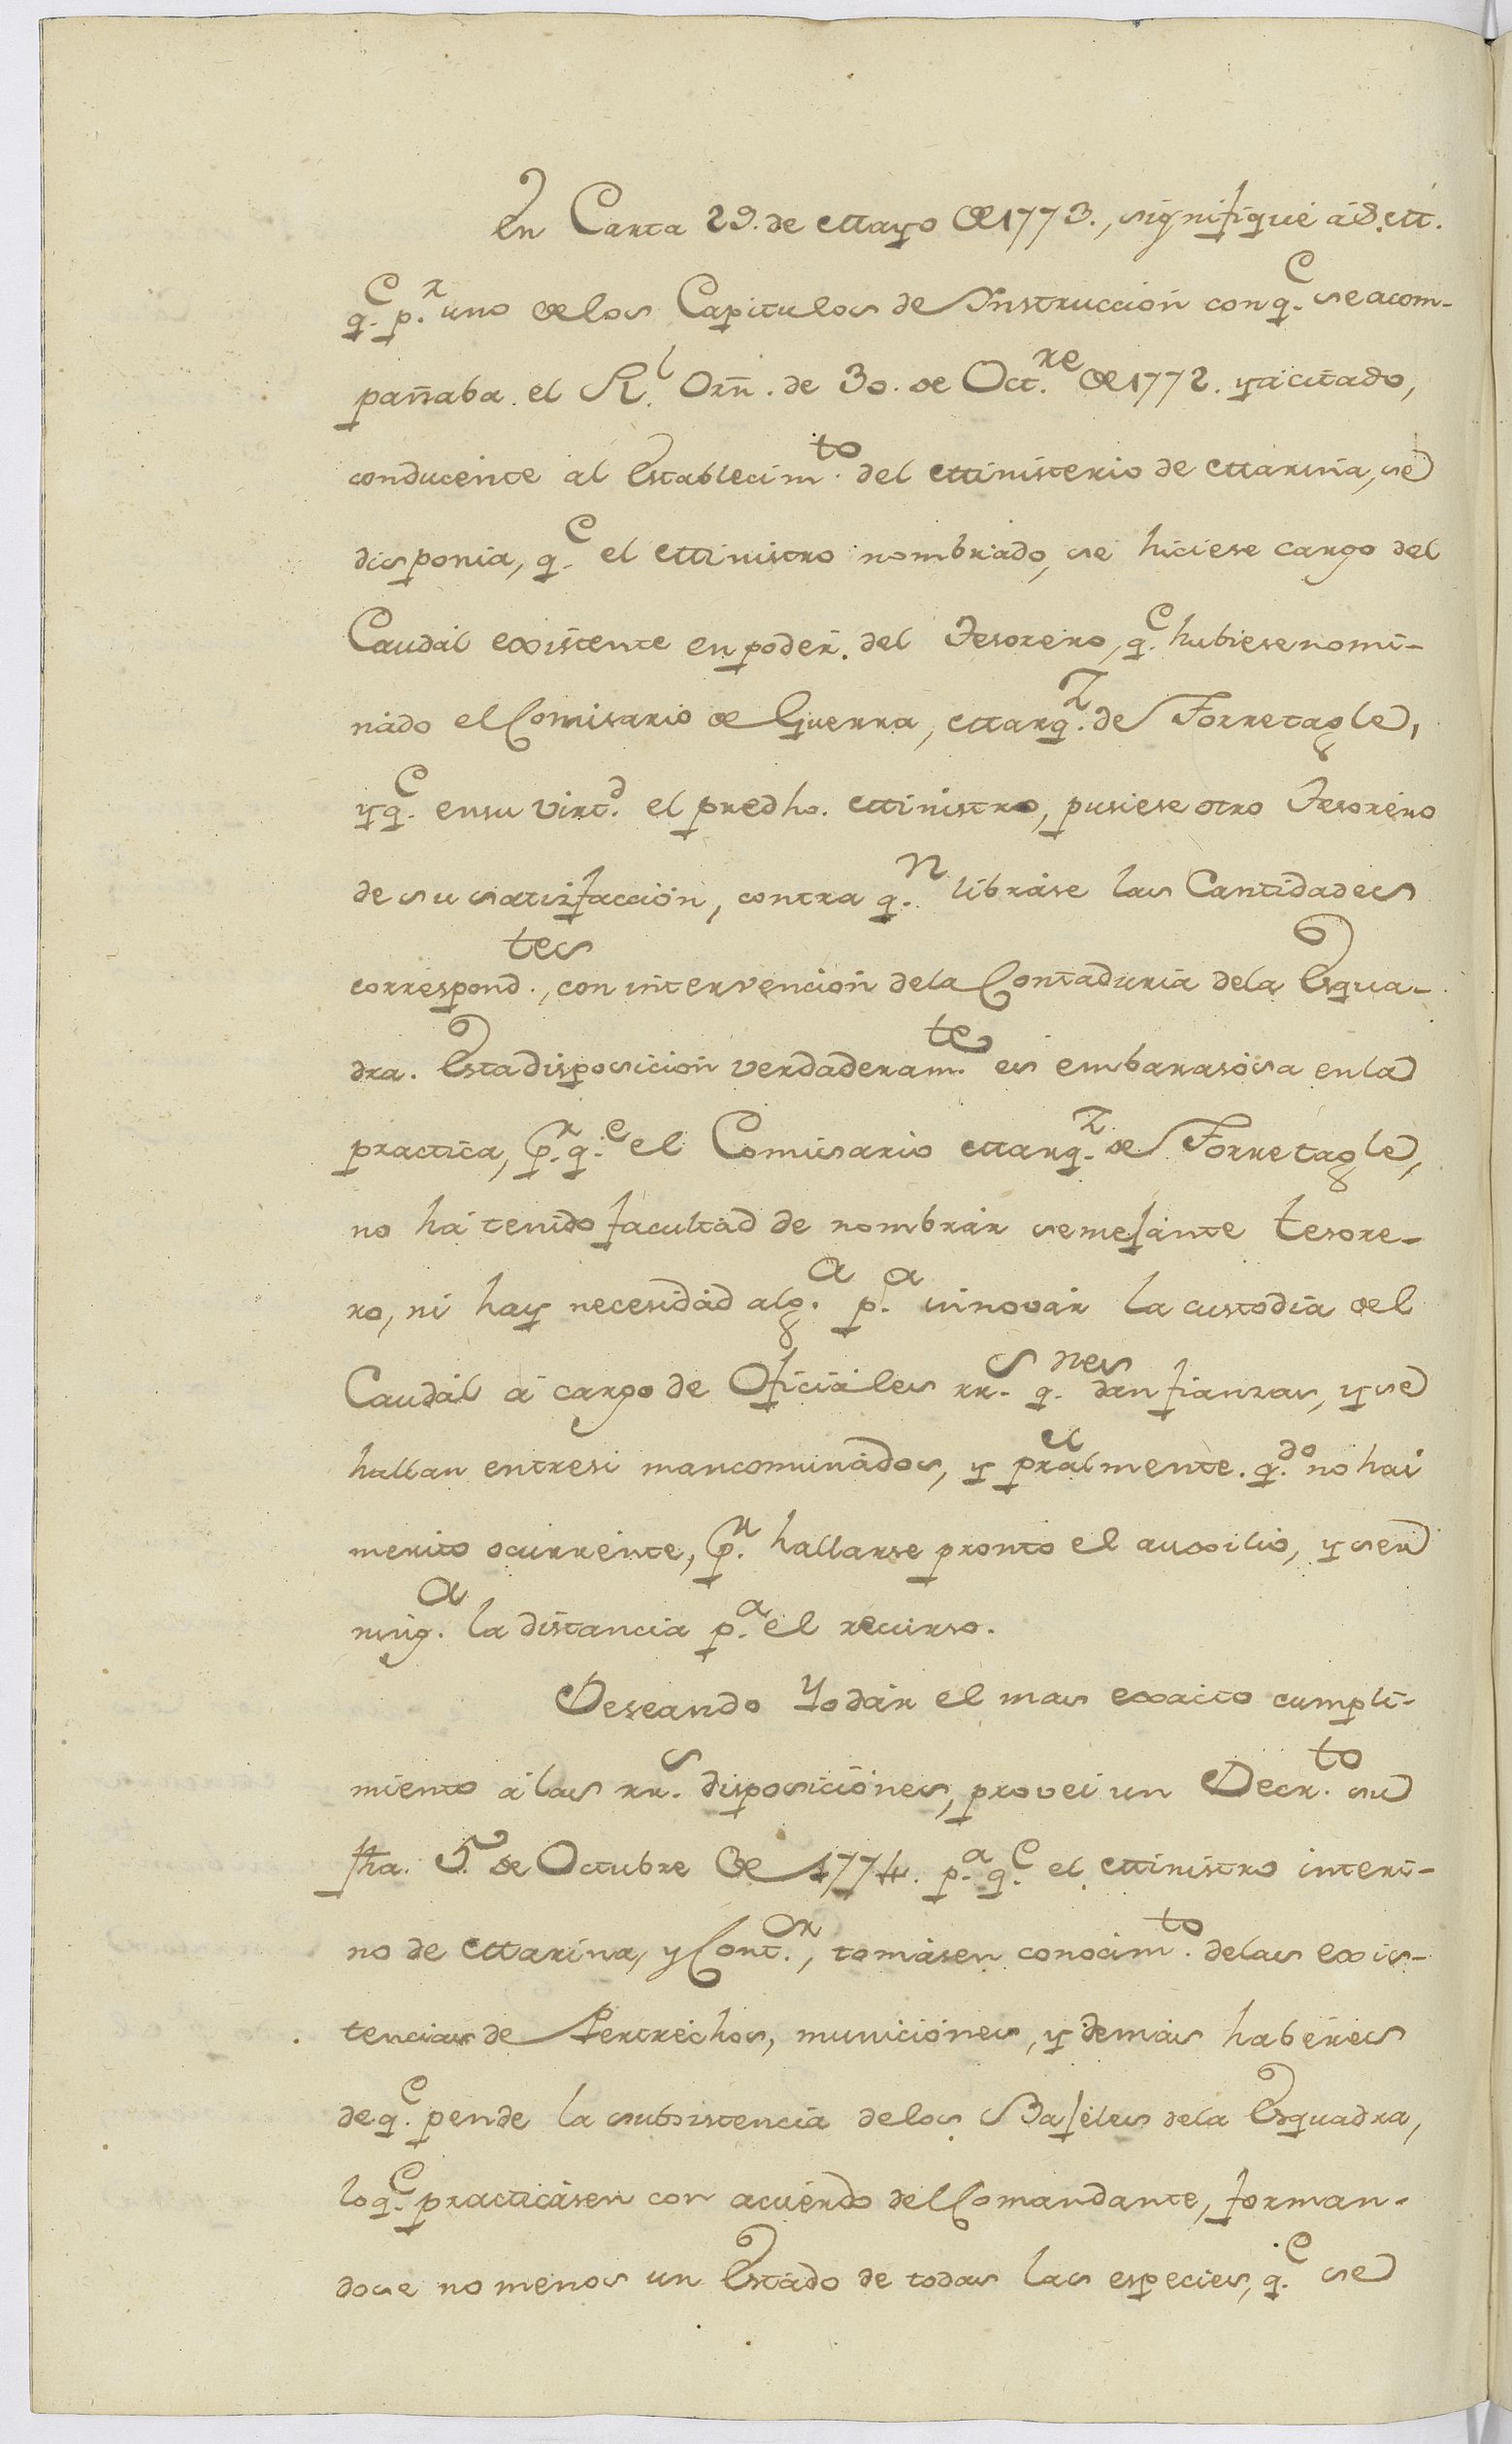 En Carta 29. de Mayo de 1773., signifiqué á S. M.
q.e p.r uno de los Capitulos de Instruccion con q.e se acom-
pañaba el R.l Orñ. de 30. de Oct.re de 1772. ya citado,
conducente al Establecim.to del Ministerio de Marina, se
disponia, q.e el Ministro nombrado, se hiciese cargo del
Caudal existente en poder. del Tesorero, q.e hubiese nomi-
nado el Comisario de Guerra, Marq.z de Torretagle,
y q.e en su virt.d el predho. Ministro, pusiese otro Tesorero
de su satisfaccion, contra q.n librase las Cantidades
correspond.tes, con intervencion de la Contaduria de la Esqua-
dra. Esta disposicion verdaderam.te es embarasosa en la
practica, p.r q.e el Comisario Marq.z de Torretagle,
no há tenido facultad de nombrar semejante tesore-
ro, ni hay necesidad alg.a p.a innovar la custodia del
Caudal á cargo de Oficiales rr.s q.nes dan fianzas, y se
hallan entresi mancomunados, y pralmente. q.do no hai
merito ocurrente, p.r hallarse pronto el auxilio, y ser
ning.a la distancia p.a el recurso.
Deseando Yo dár el mas exacto cumpli-
miento á las rr.s disposiciónes, proveí un Decr.to su
fha. 5. de Octubre de 1774. p.a q.e el Ministro interi-
no de Marina, y Cont.or, tomásen conocim.to de las exis-
tencias de Pertrechos, municiónes, y demás habéres
de q.e pende la subsistencia de los Bajéles de la Esquadra,
lo q.e practicásen con acuerdo del Comandante, forman-
dose no menos un Estado de todas las especies, q.e se